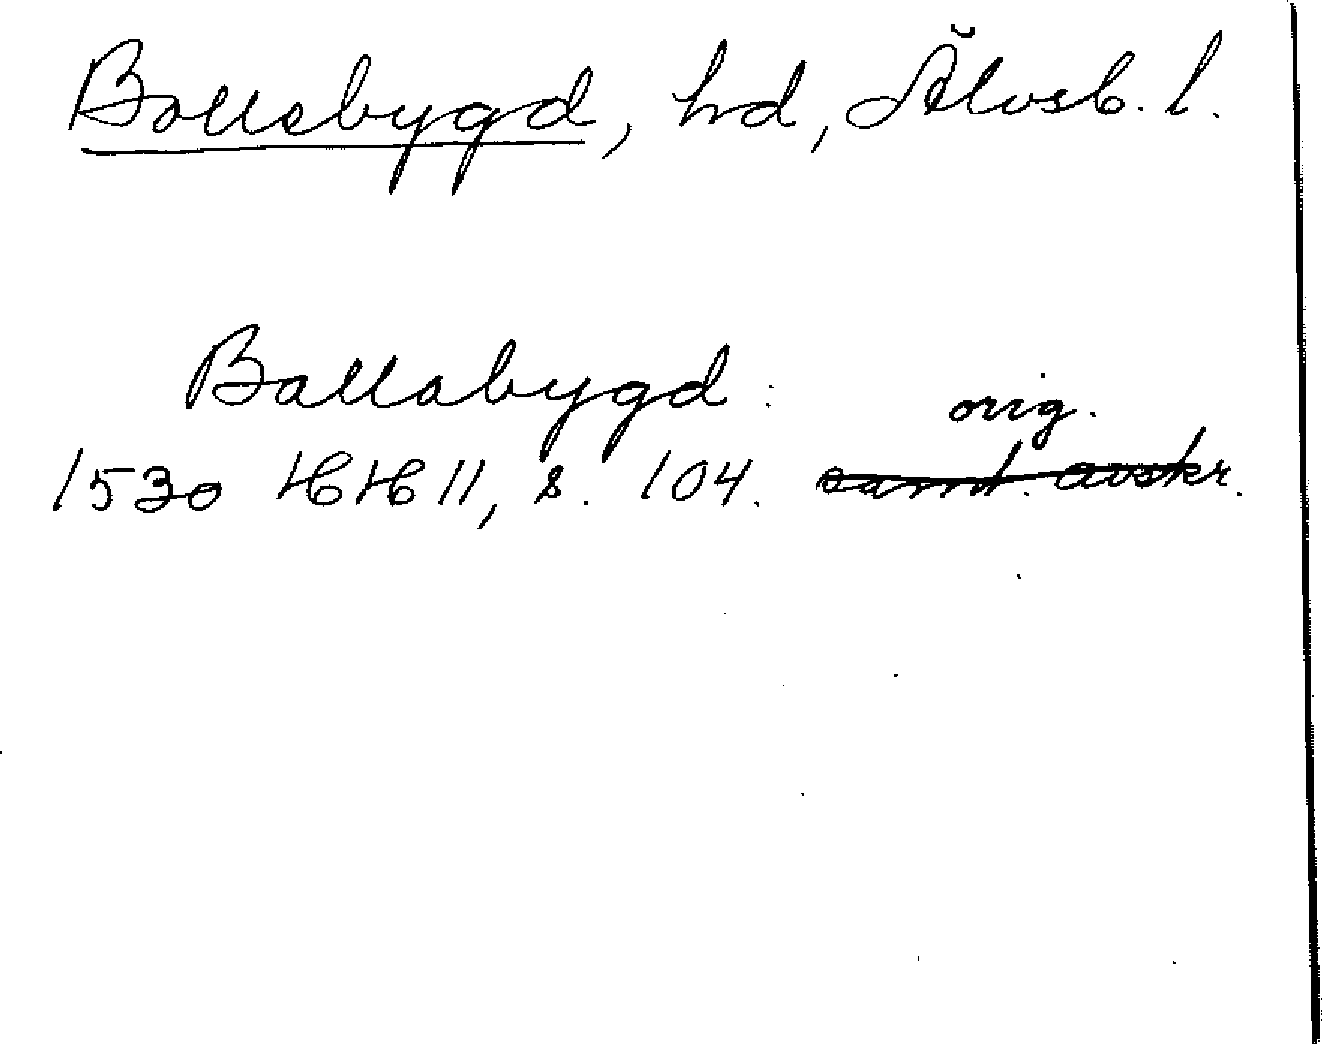 Bollebygd, hd, Älvsb. l.
Ballabygd: orig.
1530 HH 11, s. 104. samt. avskr.